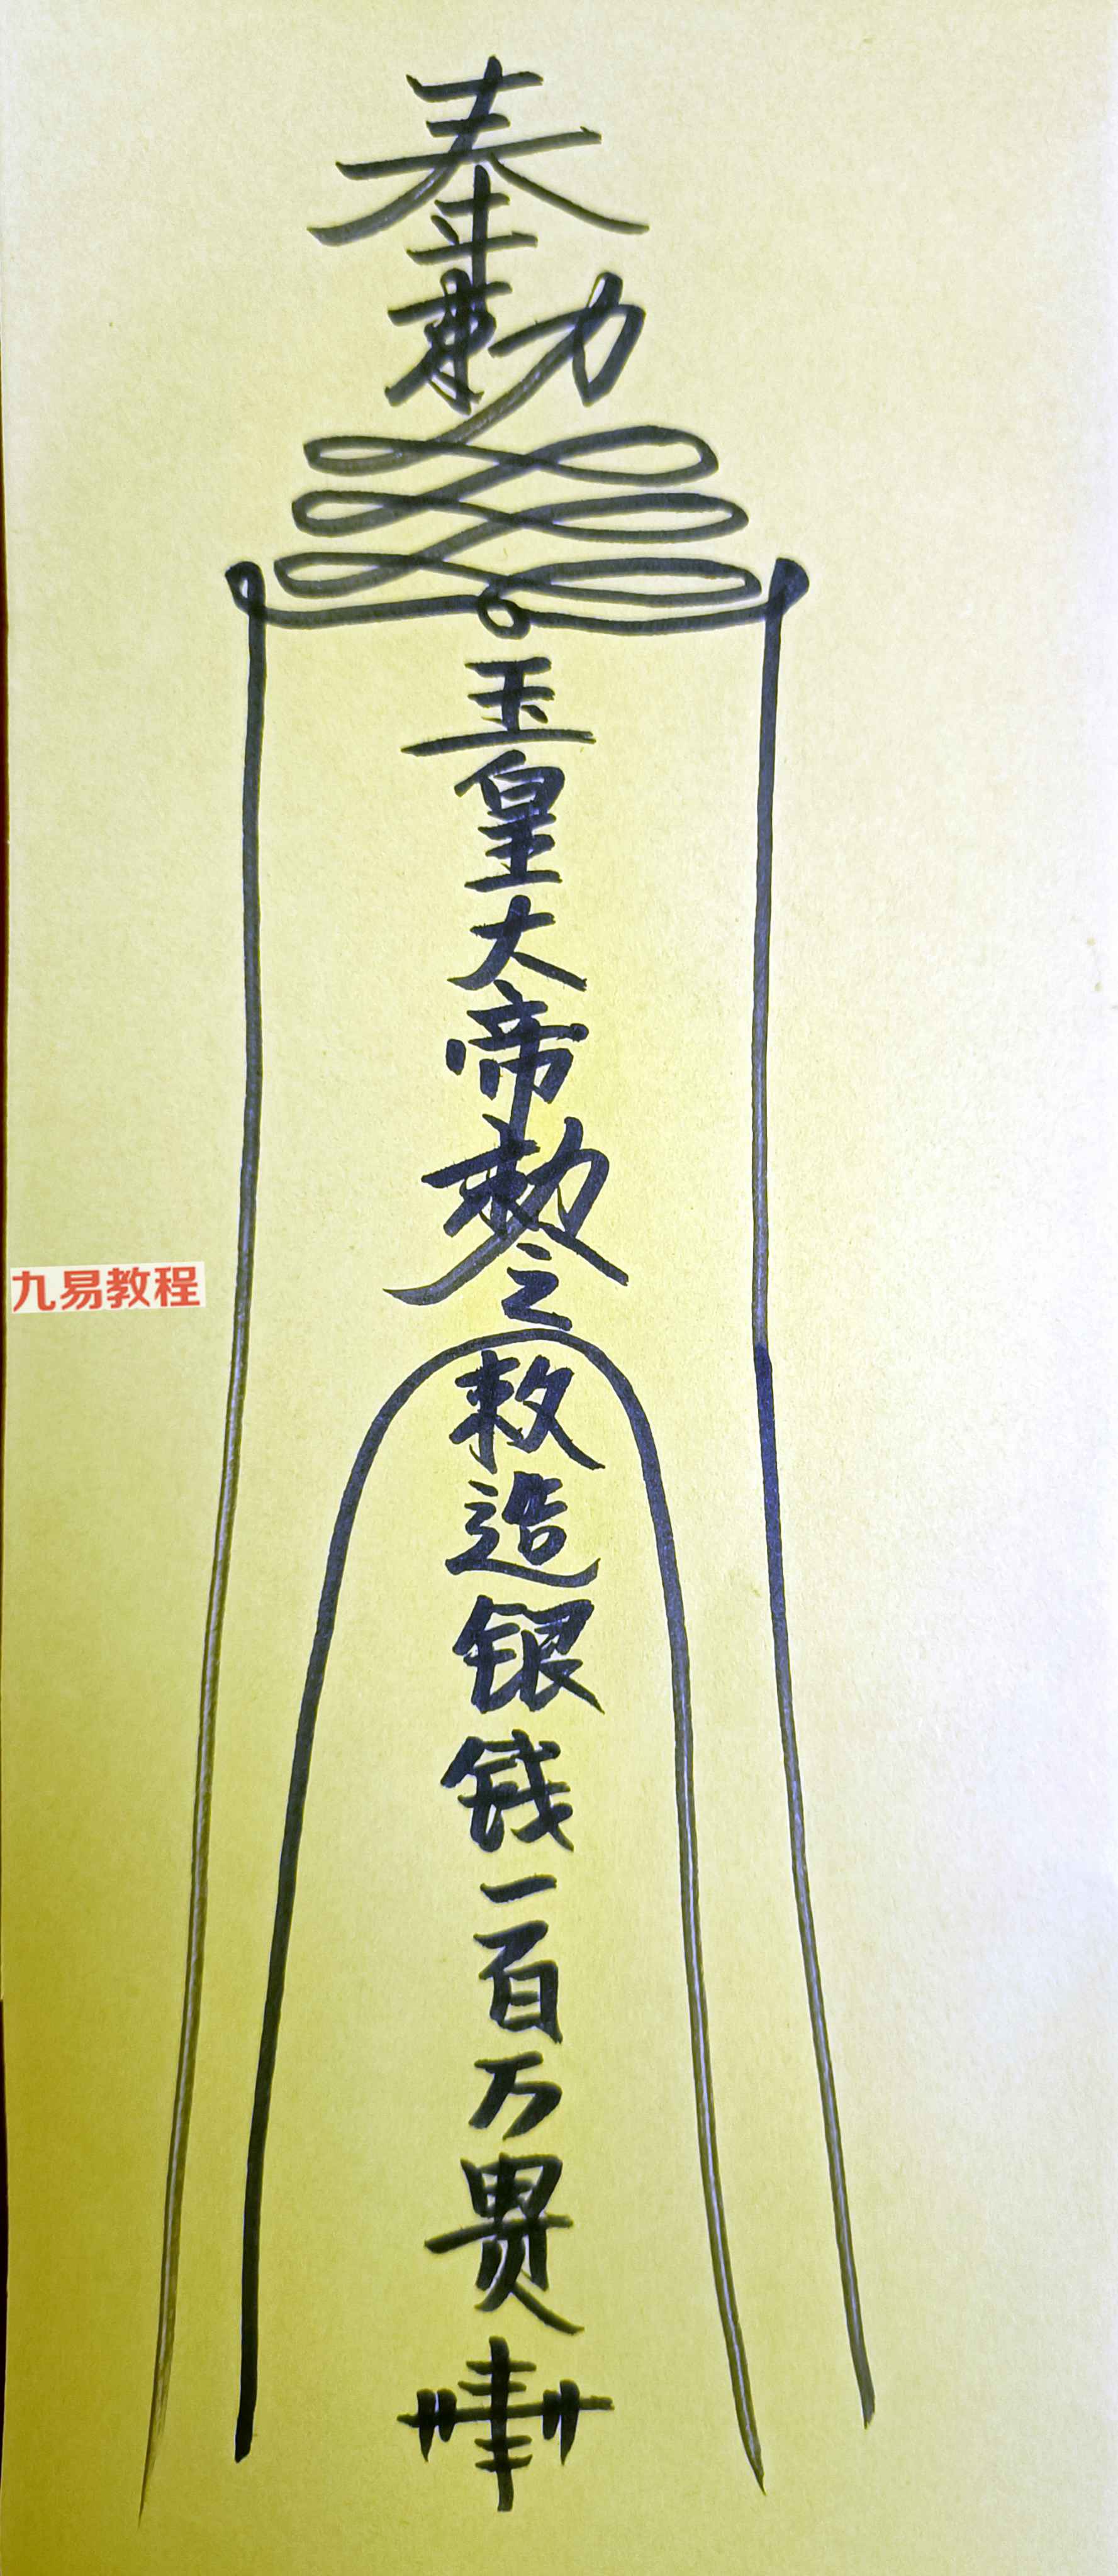 奉勅
玉皇大帝勅令
敕造银钱一百万贯
九易教程